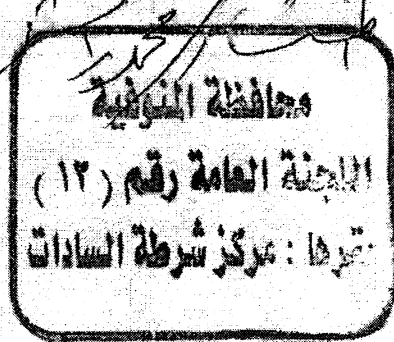 محافظة المنوفية
اللجنة العامة رقم (١٣)
مقرها : مركز شرطة السادات